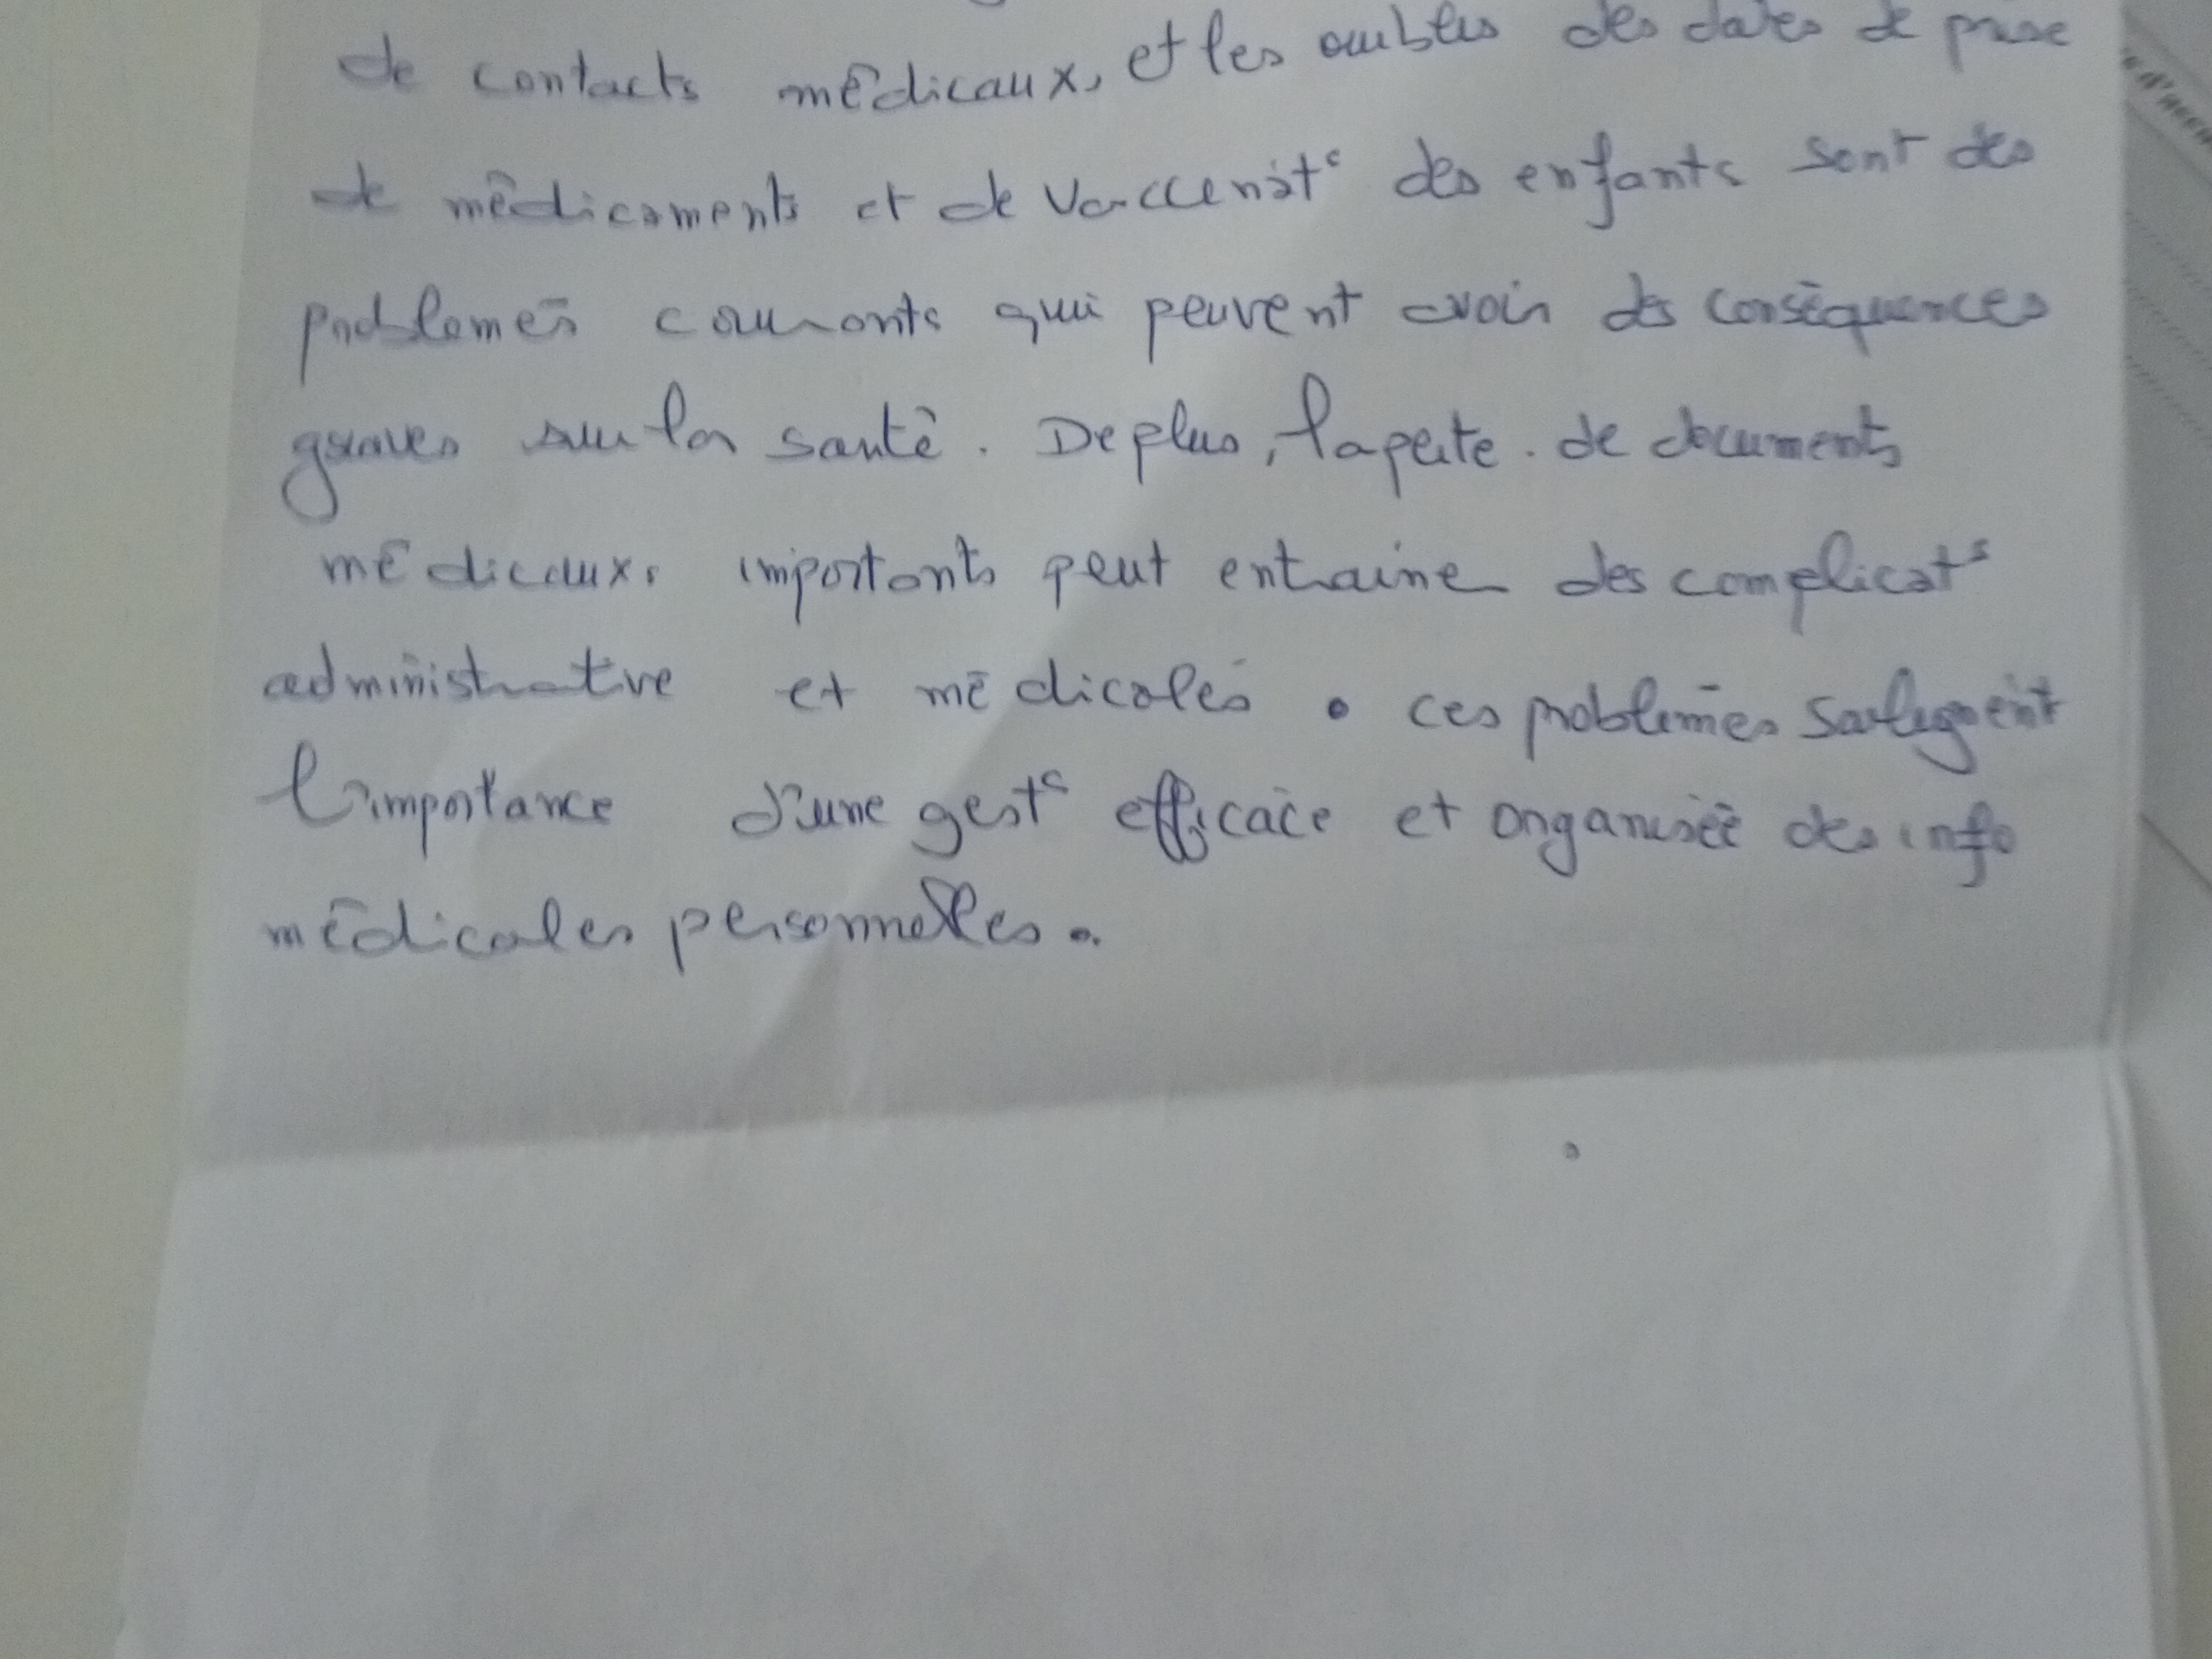 de contacts médicaux, et les oublis des dates de prise
de médicaments et de vaccinat° des enfants sont des
problèmes courants qui peuvent avoir des conséquences
graves sur la santé. De plus, la perte. de documents
médicaux. importants peut entrainer des complicat°
administrative et médicales. ces problèmes soulignent
l'importance d'une gest° efficace et organisée des info
médicales personnelles.